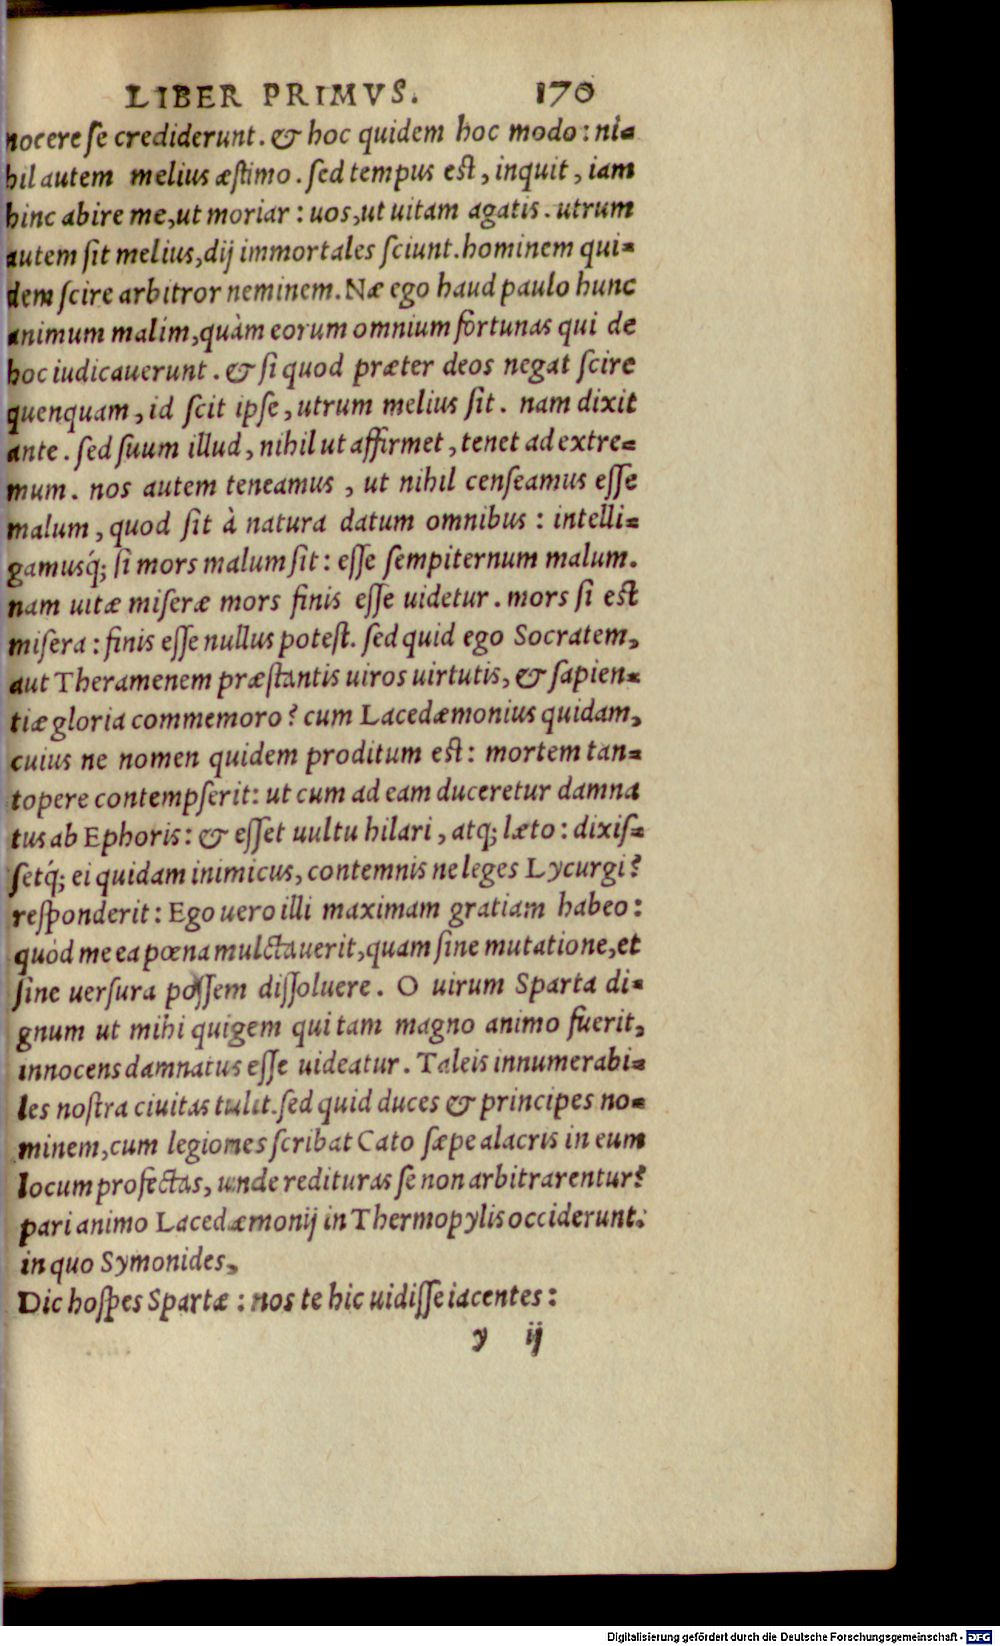 LIBER PRIMVS. 170
nocere ſe crediderunt. & hoc quidem hoc modo: ni-
hil autem melius æſtimo. ſed tempus eſt, inquit, iam
hinc abire me, ut moriar: uos, ut uitam agatis. utrum
autem ſit melius, dij immortales ſciunt. hominem qui-
dem ſcire arbitror neminem. Næ ego haud paulo hunc
animum malim, quàm eorum omnium fortunas qui de
hoc iudicauerunt. & ſi quod præter deos negat ſcire
quenquam, id ſcit ipſe, utrum melius ſit. nam dixit
ante. ſed ſuum illud, nihil ut affirmet, tenet ad extre-
mum. nos autem teneamus, ut nihil cenſeamus eſſe
malum, quod ſit à natura datum omnibus: intelli-
gamusq́; ſi mors malum ſit: eſſe ſempiternum malum.
nam uitæ miſeræ mors finis eſſe uidetur. mors ſi eſt
miſera: finis eſſe nullus poteſt. ſed quid ego Socratem,
aut Theramenem præſtantis uiros uirtutis, & ſapien-
tiæ gloria commemoro? cum Lacedæmonius quidam,
cuius ne nomen quidem proditum eſt: mortem tan-
topere contempſerit: ut cum ad eam duceretur damna
tus ab Ephoris: & eſſet uultu hilari, atq; læto: dixiſ-
ſetq́; ei quidam inimicus, contemnis ne leges Lycurgi?
reſponderit: Ego uero illi maximam gratiam habeo:
quòd me ea pœna mulctauerit, quam ſine mutatione, et
ſine uerſura poſſem diſſoluere. O uirum Sparta di-
gnum ut mihi quigem qui tam magno animo fuerit,
innocens damnatus eſſe uideatur. Taleis innumerabi-
les noſtra ciuitas tulit. ſed quid duces & principes no-
minem, cum legiones ſcribat Cato ſæpe alacris in eum
locum profectas, unde redituras ſe non arbitrarentur?
pari animo Lacedæmonij in Thermopylis occiderunt:
in quo Symonides,
Dic hoſpes Spartæ: nos te hic uidiſſe iacentes:
y ij
Digitalisierung gefördert durch die Deutsche Forschungsgemeinschaft - DFG